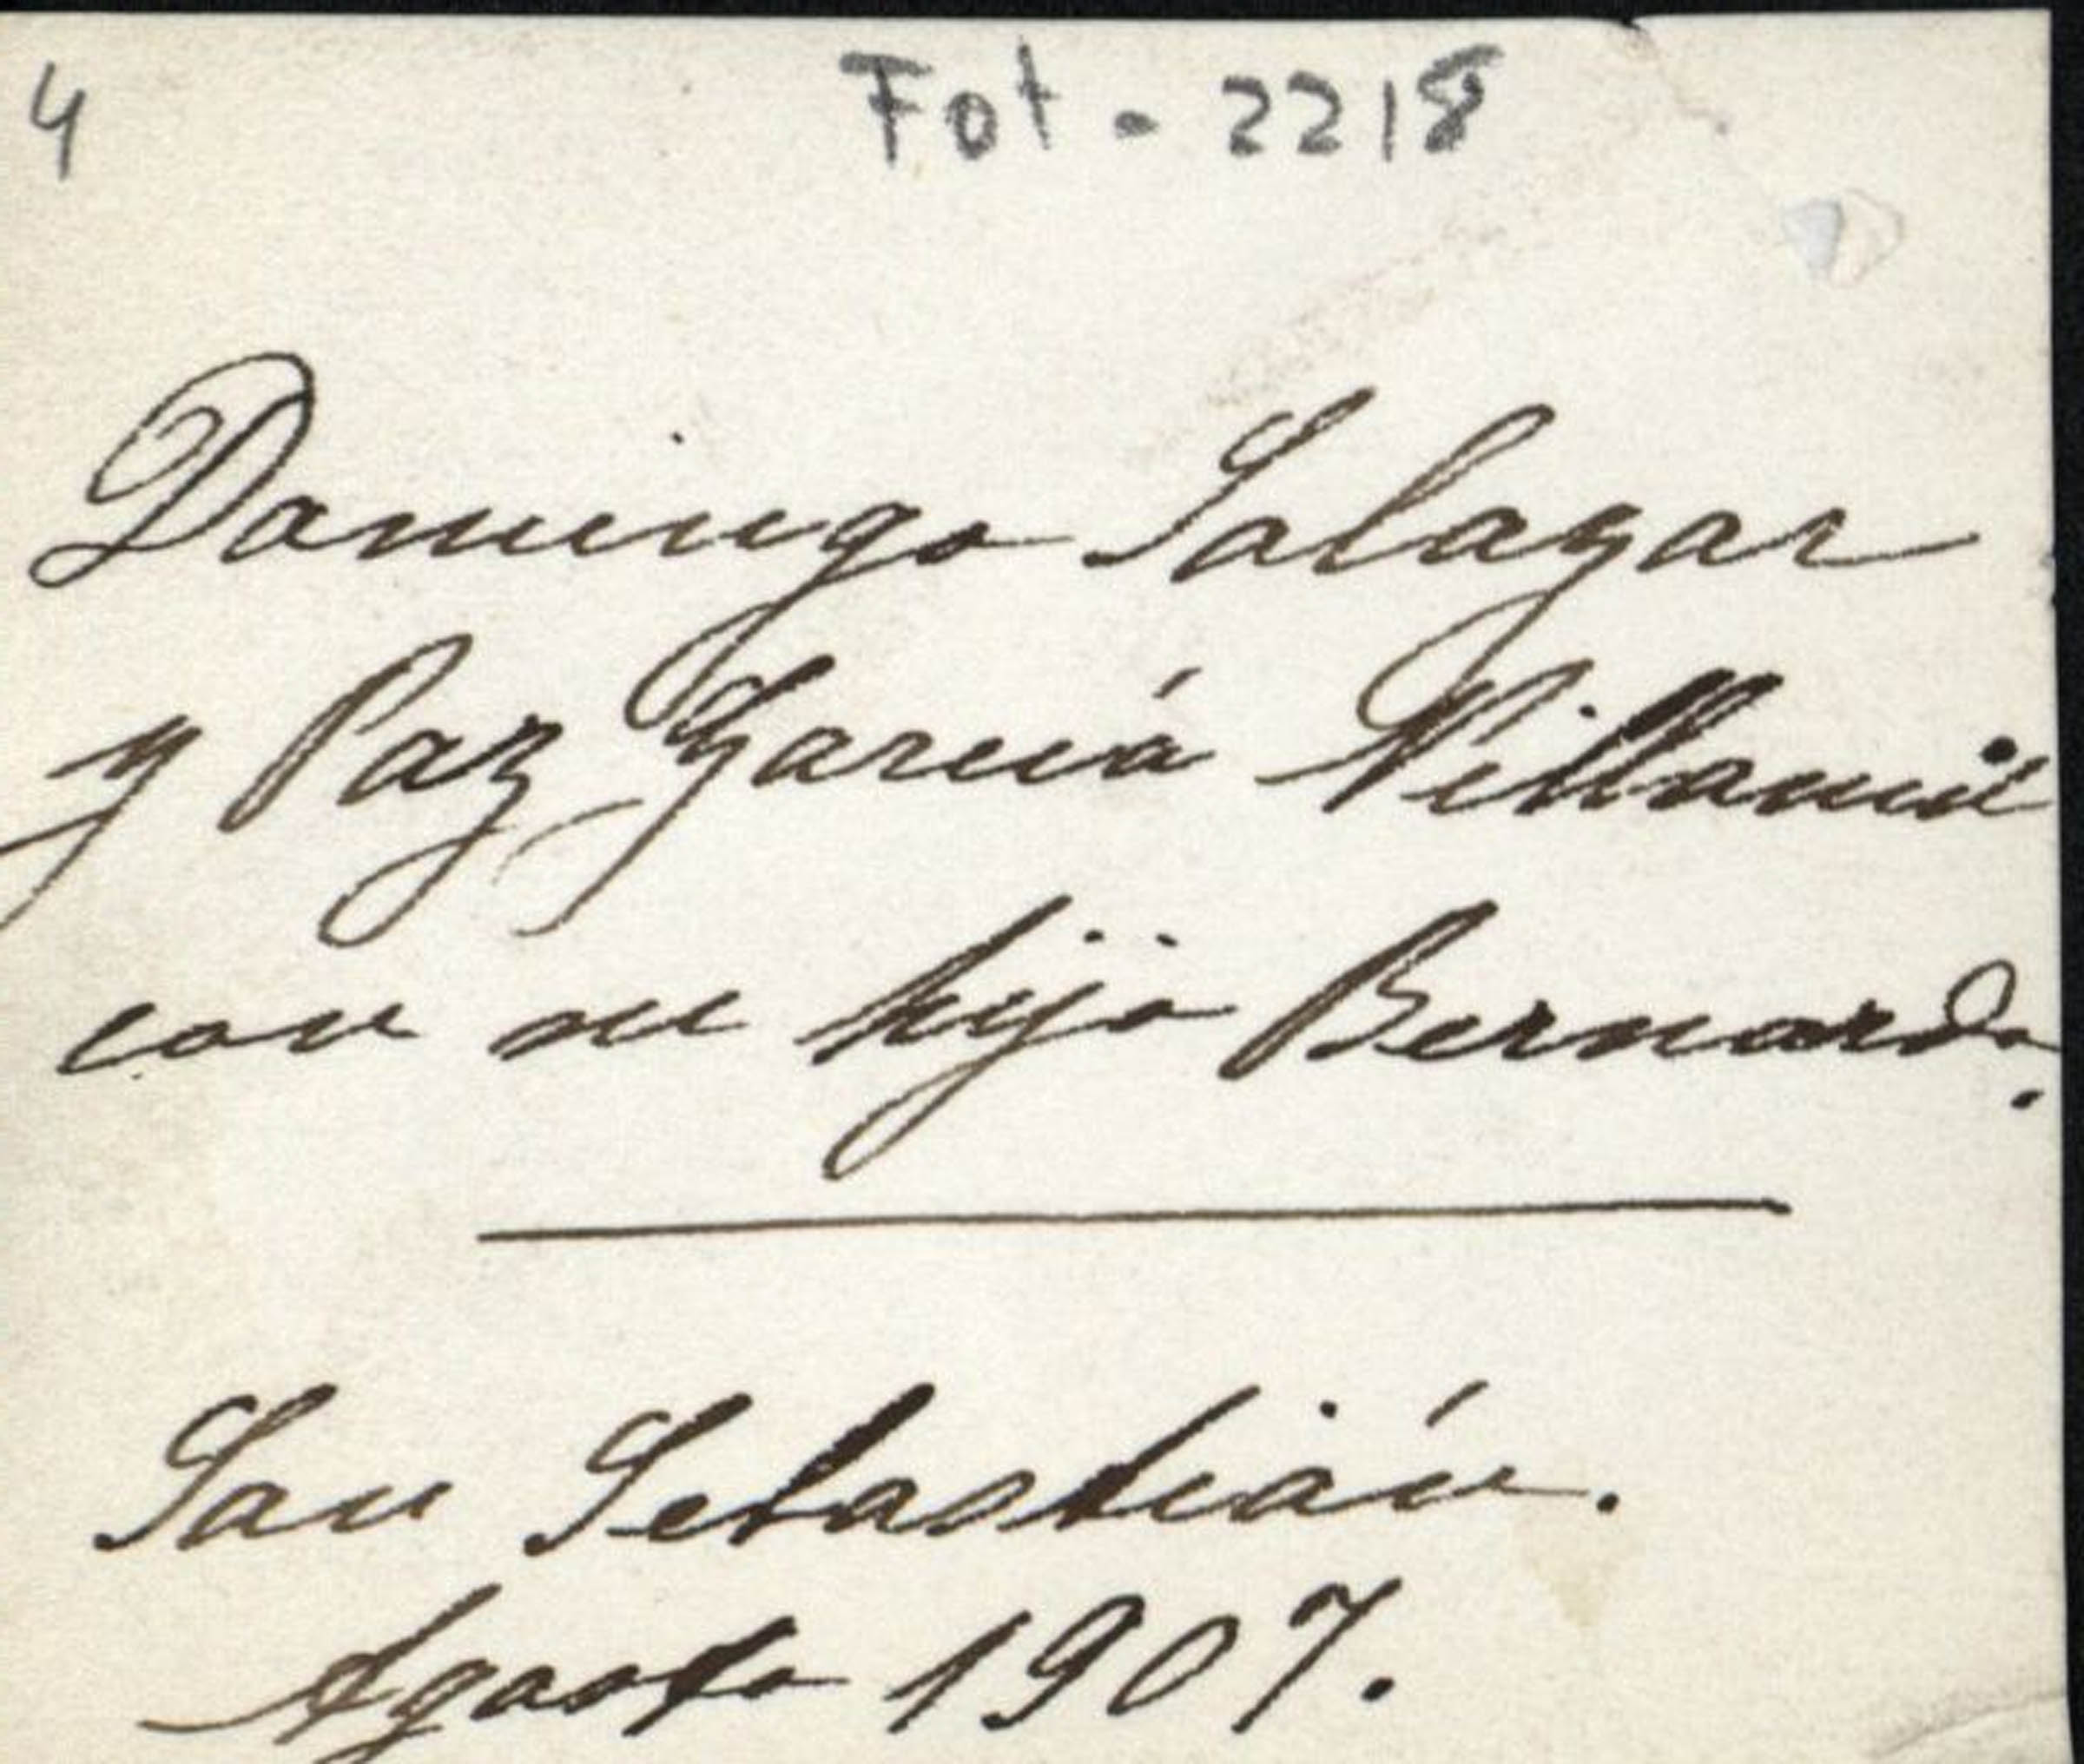 4 Fot - 2218
Domingo Salazar
y Paz García Villamil
con su hijo Bernardo.
San Sebastián.
Agosto 1907.